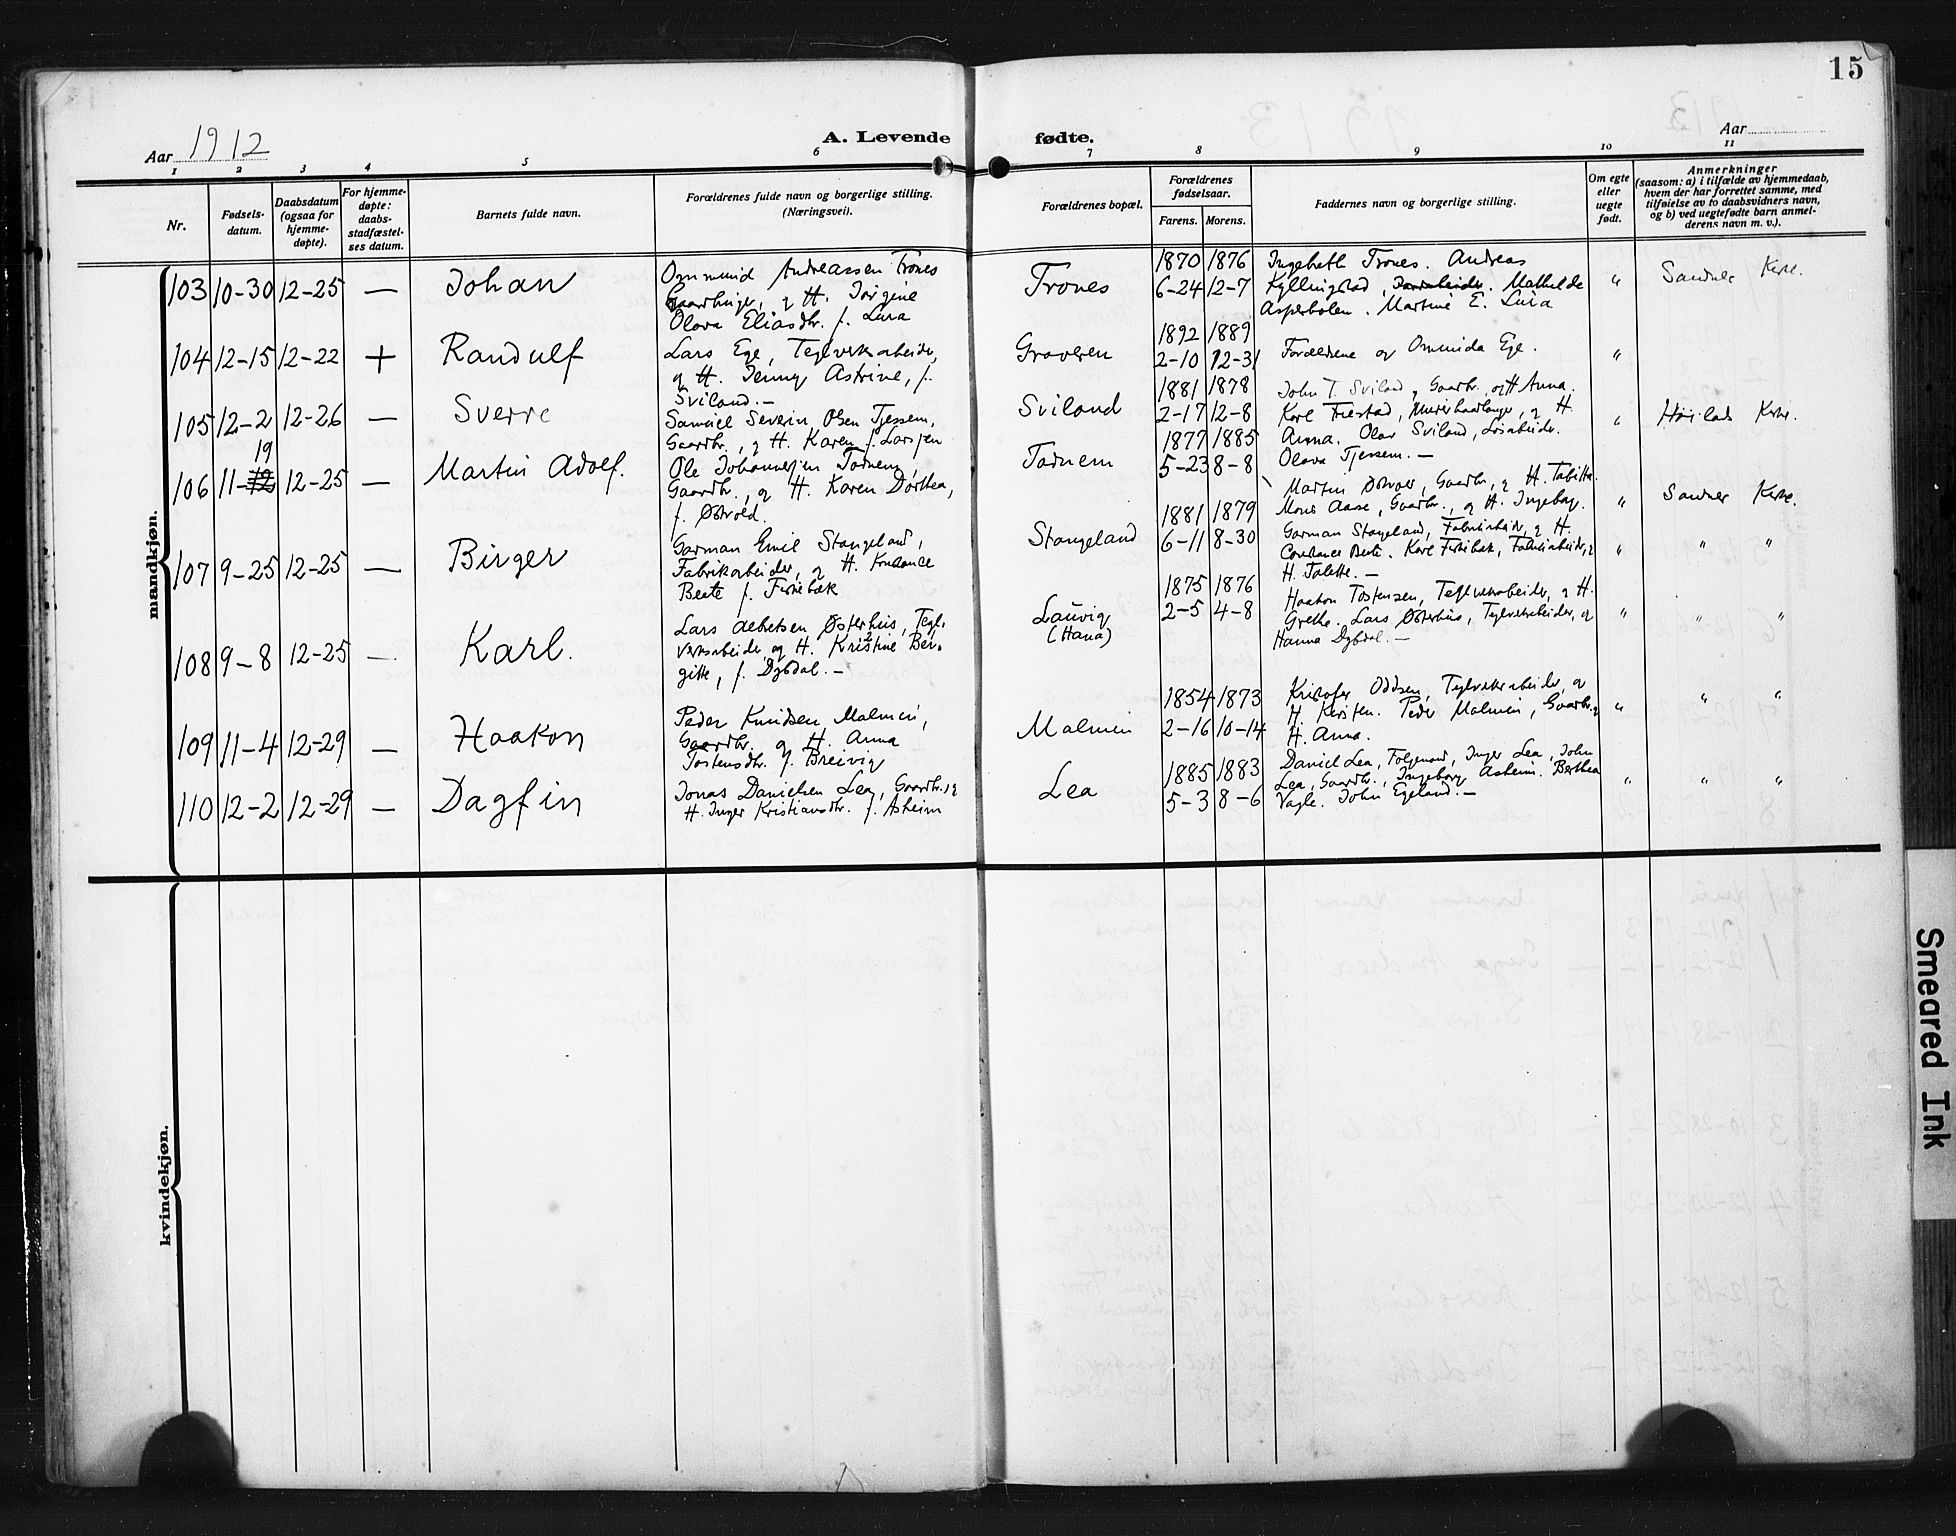 15
Aar 1912
A. Levende fødte.
Aar
1 2 3 4 5 6 7 8 9 10 11
Nr.
Fødsels-
datum.
Daabsdatum
(ogsaa for
hjemme-
døpte).
For hjemme-
døpte:
daabs-
stadfæstel-
ses datum.
Barnets fulde navn.
Forældrenes fulde navn og borgerlige stilling.
(Næringsvei).
Forældrenes bopæl.
Forældrenes
fødselsaar.
Farens. Morens.
Faddernes navn og borgerlige stilling.
Om egte
eller
uegte
født.
Anmerkninger
(saasom: a) i tilfælde av hjemmedaab,
hvem der har forrettet samme, med
tilføielse av to daabsvidners navn,
og b) ved uegtefødte barn anmel-
derens navn m. v.).
mandkjøn.
103 10-30 12-25 — Johan
Ommund Andreassen Trones
Gaardbruger, og H. Jørgine
Olava Eliasdtr. f. Lura
Trones
1870 1876
6-24 12-7
Ingebreth Trones. Andreas
Kyllingstad, . Mathilde
Aspeholen. Martine E. Lura
" Sandnes Kirke.
104 12-15 12-22 + Randulf
Lars Ege, Teglverksarbeider,
og H. Jenny Astrine, f.
Sviland. —
Graveren
1892 1889
2-10 12-31
Forældrene og Ommida Ege.
"
105 12-2 12-26 — Sverre
Samuel Severin Olsen Tjessem,
Gaardbr., og H. Karen f. Larsen
Sviland
1881 1878
2-17 12-8
John T. Sviland, Gaardbr. og H Anna.
Karl Frestad, Murerhaandlanger, og H.
Anna. Olav Sviland, Løsarbeider.
Olava Tjessem. —
" Høilands Kirke.
106 11-12 19 12-25 — Martin Adolf.
Ole Johannesen Todnem,
Gaardbr., og H. Karen Dorthea,
f. Østvold.
Todnem
1877 1885
5-23 8-8
Martin Østvold, Gaardbr., og H. Tabitha.
Mons Aase, Gaardbr., og H. Ingeborg.
" Sandnes Kirke.
107 9-25 12-25 — Birger
Garman Emil Stangeland,
Fabrikarbeider, og H. Konstance
Beate f. Fiskebæk
Stangeland
1881 1879
6-11 8-30
Garman Stangeland, Fabrikarbeider, og H.
Constance Beate. Karl Fiskebæk, Fabrikarbeider, og
H. Talette. —
" " "
108 9-8 12-25 — Karl.
Lars Aebretsen Østerhus, Tegl-
verksarbeider, og H. Kristine Ber-
gitte, f. Dybdal. —
Lauvig
(Hana)
1875 1876
2-5 4-8
Haakon Tostensen, Teglverksarbeider, og H.
Grethe. Lars Østerhus, Teglverksarbeider, og
Hanna Dybdal. —
" " "
109 11-4 12-29 — Haakon
Peder Knudsen Malmin,
Gaardbr. og H. Anna
Tostensdtr. f. Breivig
Malmin
1854 1873
2-16 10-14
Kristofer Oddsen, Teglverksarbeider, og
H. Kirsten. Peder Malmin, Gaardbr. og
H. Anna.
" " "
110 12-2 12-29 — Dagfin
Jonas Danielsen Lea, Gaardbr., og
H. Inger Kristiansdtr. f. Asheim
Lea
1885 1883
5-3 8-6
Daniel Lea, Følgemand, Inger Lea, John
Lea, Gaardbr., Ingeborg Asheim. Berthea
Vagle. John Egeland. —
" " "
kvindekjøn.
Smeared Ink